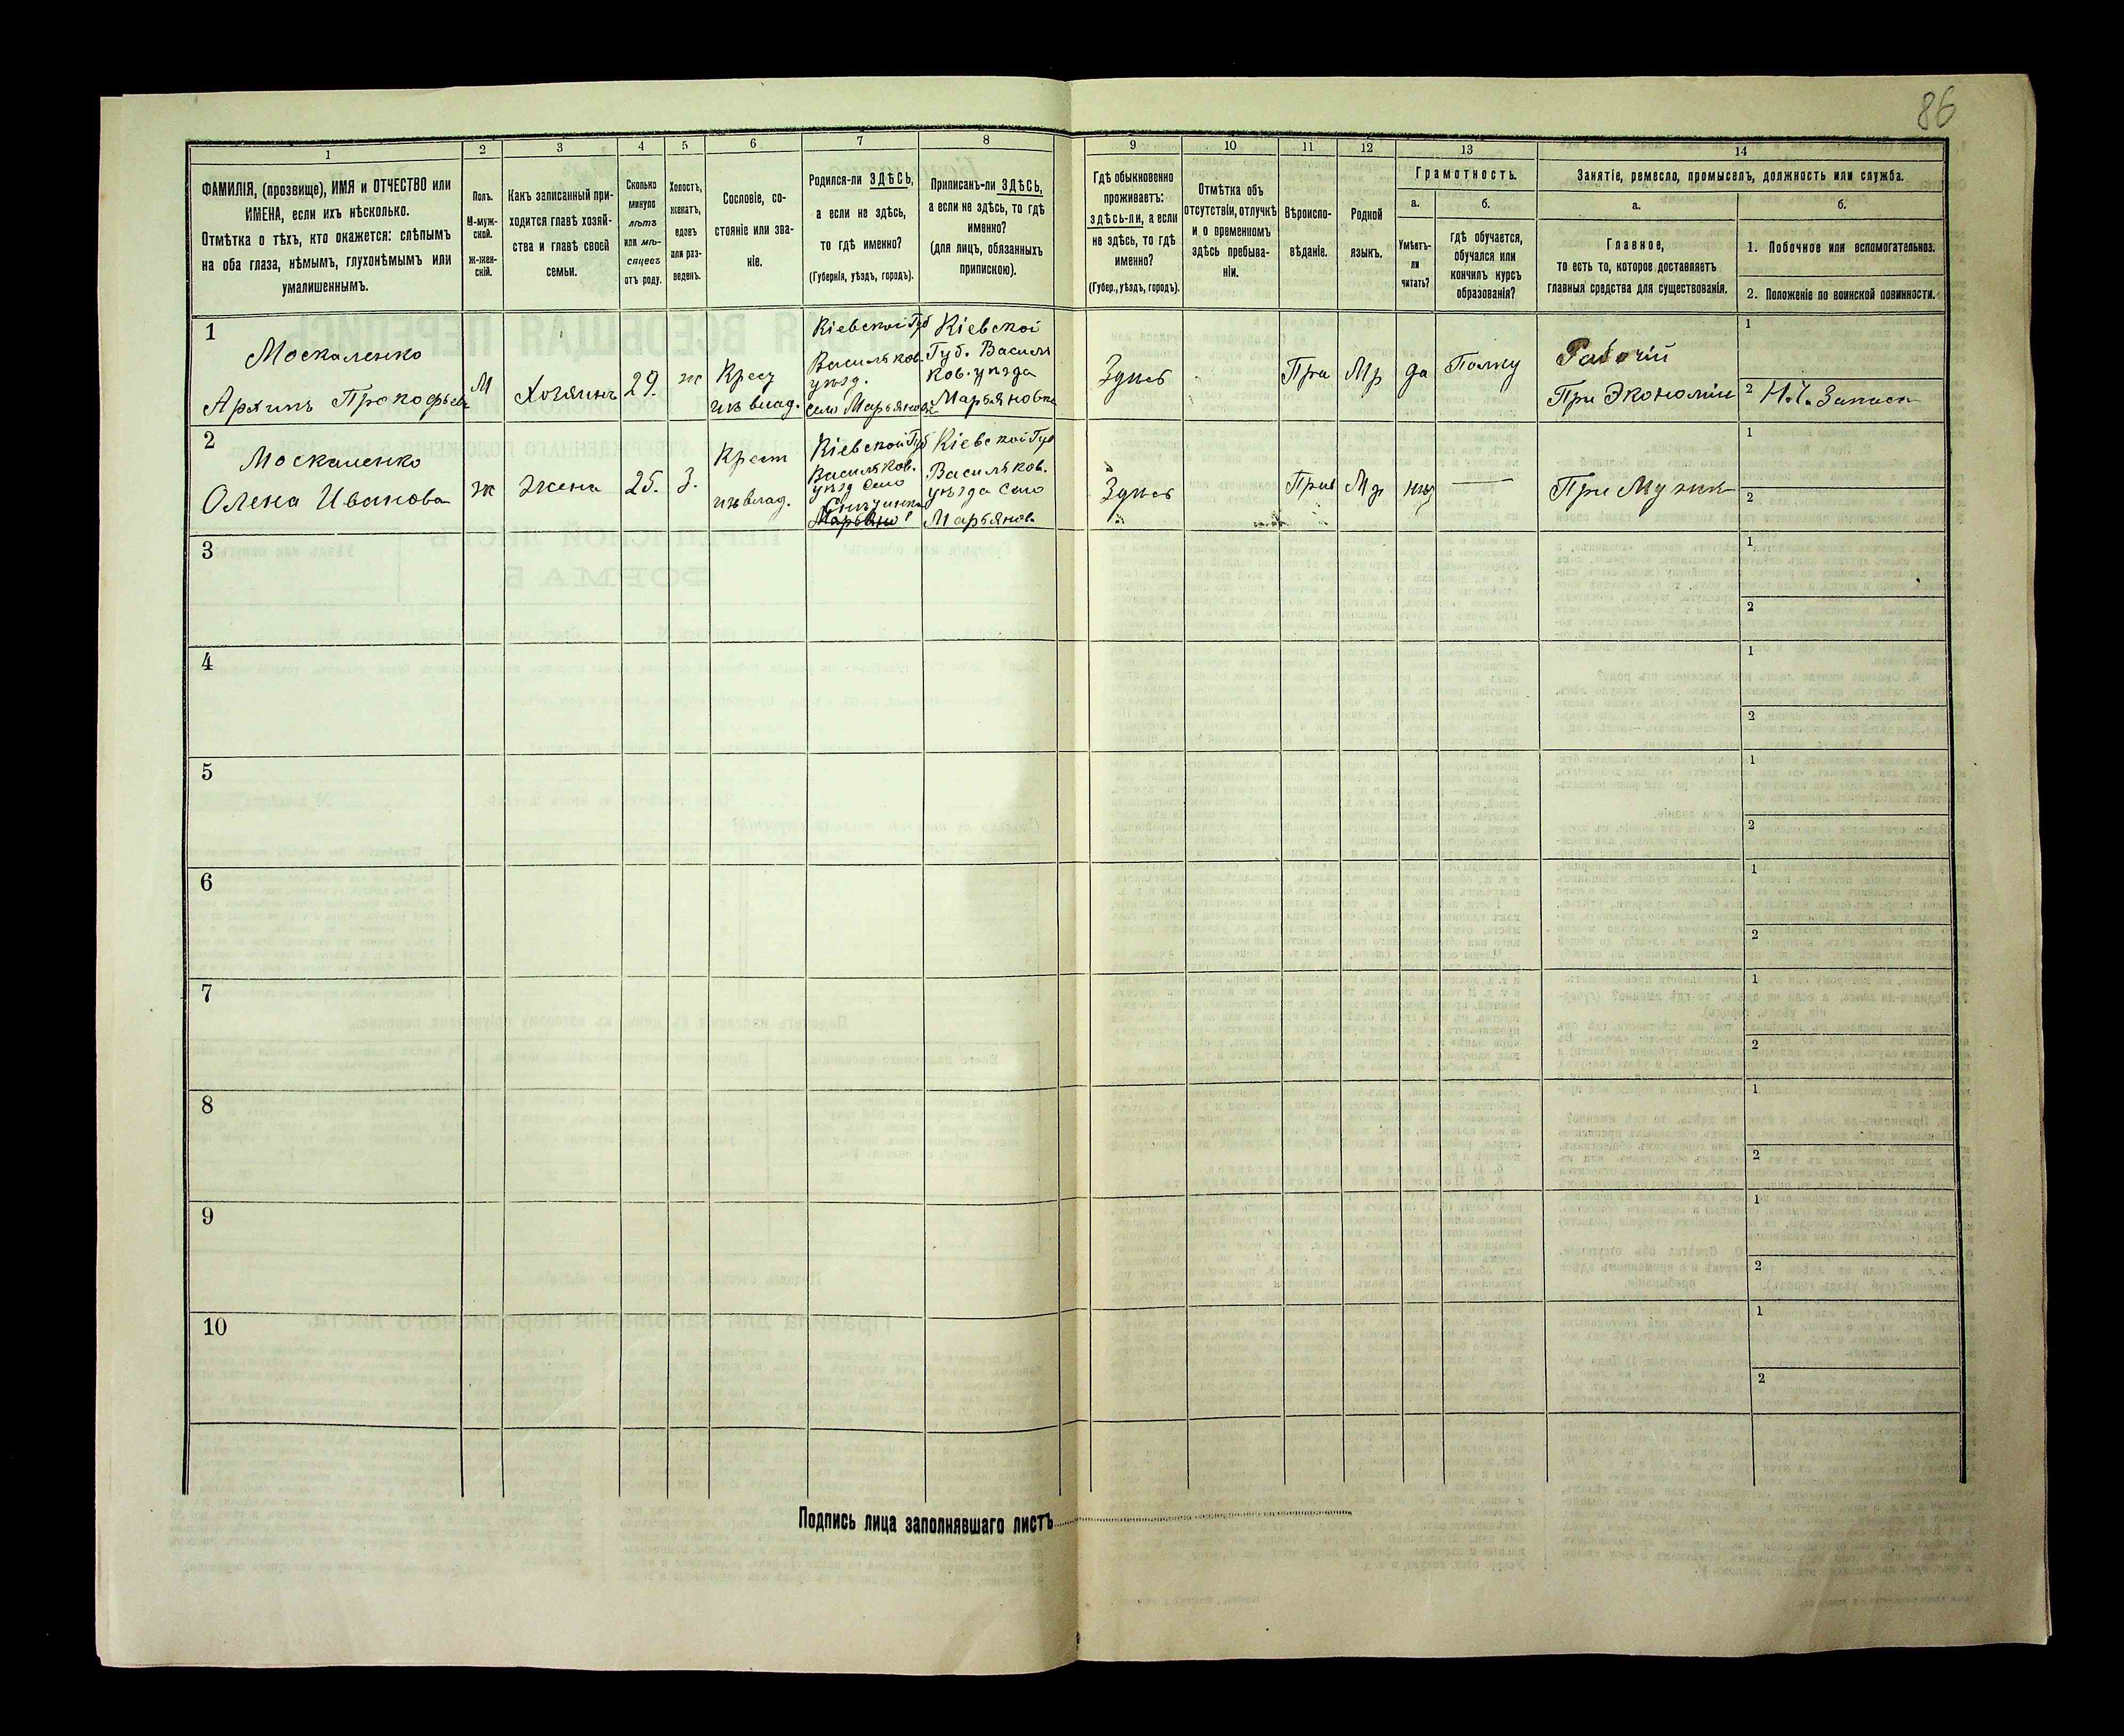 86
1
2
3
4
5
6
7
8
9
10
11
12
13
14
ФАМИЛІЯ, (прозвище), ИМЯ и ОТЧЕСТВО или
ИМЕНА, если ихъ нѣсколько.
Отмѣтка о тѣхъ, кто окажется: слѣпымъ
на оба глаза, нѣмымъ, глухонѣмымъ или
умалишеннымъ.
Полъ.
М-муж-
ской.
Ж-жен-
скій.
Какъ записанный при-
ходится главѣ хозяй-
ства и главѣ своей
семьи.
Сколько
минуло
лѣтъ
или мѣ-
сяцевъ
отъ роду.
Холостъ,
женатъ,
вдовъ
или раз-
веденъ.
Сословіе, со-
стояніе или зва-
ніе.
Родился-ли ЗДѢСЬ,
а если не здѣсь,
то гдѣ именно?
(Губернія, уѣздъ, городъ).
Приписанъ-ли ЗДѢСЬ,
а если не здѣсь, то гдѣ
именно?
(для лицъ, обязанныхъ
припискою).
Гдѣ обыкновенно
проживаетъ:
здѣсь-ли, а если
не здѣсь, то гдѣ
именно?
(Губер., уѣздъ, городъ).
Отмѣтка объ
отсутствіи, отлучкѣ
и о временномъ
здѣсь пребыва-
ніи.
Вѣроиспо-
вѣданіе.
Родной
языкъ.
Грамотность.
а.
Умѣетъ-
ли
читать?
б.
гдѣ обучается,
обучался или
кончилъ курсъ
образованія?
Занятіе, ремесло, промыселъ, должность или служба.
а.
Главное,
то есть то, которое доставляетъ
главныя средства для существованія.
б.
1. Побочное или вспомогательное.
2. Положеніе по воинской повинности.
1
Москаленко
Архипъ Прокофьев
М
Хозяинъ
29.
ж
Крест
изъ влад.
Кіевской Губ
Васильков.
уѣзд.
село Марьяновк
Кіевской
Губ. Василь
ков. уѣзда
Марьяновка
Здѣсь
Пра
Мр
да
Полку
Рабочій
При Экономіи
1
2 Н.Ч. Запаса
2
Москаленко
Олена Иванова
ж
жена
25.
З.
Крест
изъ влад.
Кіевской Губ
Васильков.
уѣзд Село
Марьянов
Кіевской Губ
Васильков.
уѣзда Село
Марьянов.
Здѣсь
Прав
Мр
нѣт
При Мужѣ
1
2
3
1
2
4
1
2
5
1
2
6
1
2
7
1
2
8
1
2
9
1
2
10
1
2
Подпись лица заполнявшаго листъ